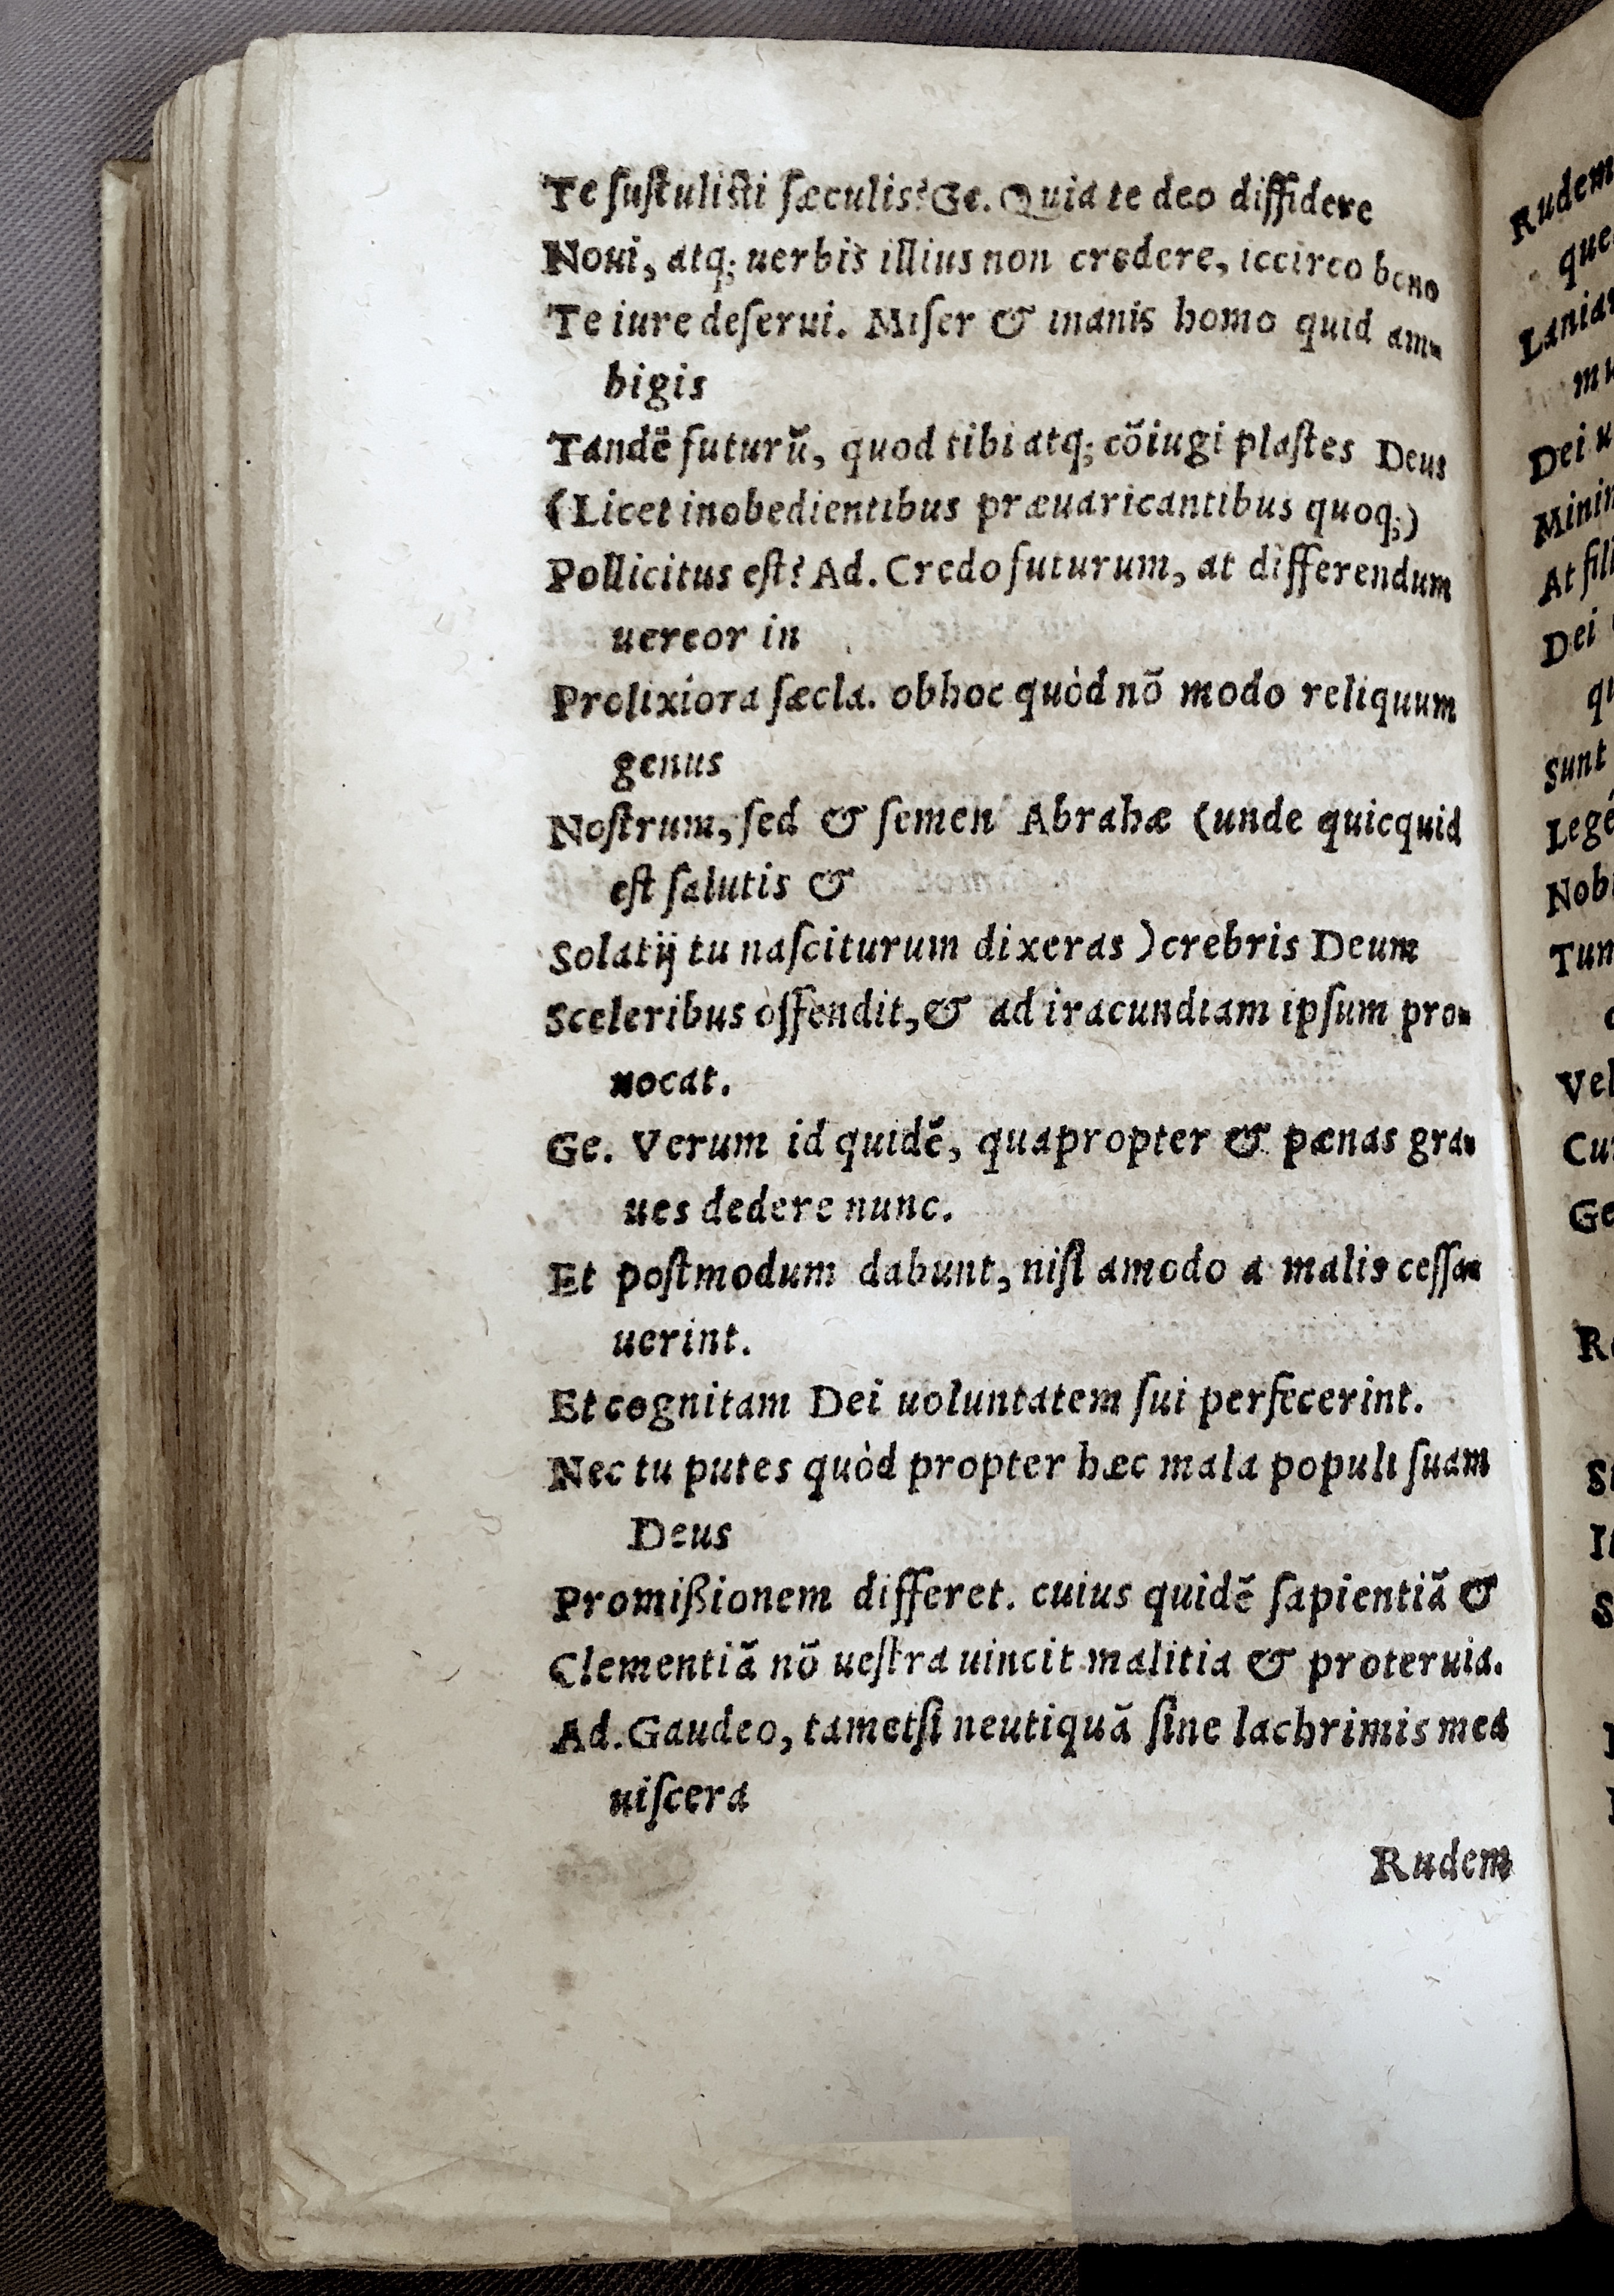 Te ſuſtuliſti ſæculis? Ge. Quia te deo diffidere
Noui, atq; uerbis illius non credere, iccirco bono
Te iure deſerui. Miſer & inanis homo quid am-
bigis
Tandẽ futurũ, quod tibi atq; cõiugi plaſtes Deus
(Licet inobedientibus præuaricantibus quoq;)
Pollicitus eſt? Ad. Credo futurum, at differendum
uereor in
Prolixiora ſæcla. obhoc quòd nõ modo reliquum
genus
Noſtrum, ſed & ſemen Abrahæ (unde quicquid
eſt ſalutis &
Solatij tu naſciturum dixeras) crebris Deum
Sceleribus offendit, & ad iracundiam ipſum pro-
uocat.
Ge. Verum id quidẽ, quapropter & pænas gra-
ues dedere nunc.
Et poſtmodum dabunt, niſi amodo a malis ceſſa-
uerint.
Et cognitam Dei uoluntatem ſui perfecerint.
Nec tu putes quòd propter hæc mala populi ſuam
Deus
Promißionem differet. cuius quidẽ ſapientiã &
Clementiã nõ ueſtra uincit malitia & proteruia.
Ad. Gaudeo, tametſi neutiquã ſine lachrimis mea
uiſcera
Rudem
Rudem
que
Dei
Dei
Sunt